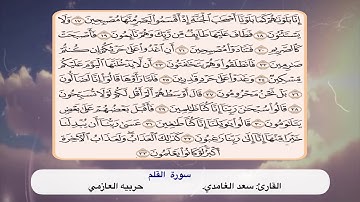 إِنَّا بَلَوْنَٰهُمْ كَمَا بَلَوْنَآ أَصْحَٰبَ ٱلْجَنَّةِ إِذْ أَقْسَمُوا۟ لَيَصْرِمُنَّهَا مُصْبِحِينَ ١٧ وَلَا
يَسْتَثْنُونَ ١٨ فَطَافَ عَلَيْهَا طَآئِفٌ مِّن رَّبِّكَ وَهُمْ نَآئِمُونَ ١٩ فَأَصْبَحَتْ
كَٱلصَّرِيمِ ٢٠ فَتَنَادَوْا۟ مُصْبِحِينَ ٢١ أَنِ ٱغْدُوا۟ عَلَىٰ حَرْثِكُمْ إِن كُنتُمْ
صَٰرِمِينَ ٢٢ فَٱنطَلَقُوا۟ وَهُمْ يَتَخَٰفَتُونَ ٢٣ أَن لَّا يَدْخُلَنَّهَا ٱلْيَوْمَ عَلَيْكُم
مِّسْكِينٌ ٢٤ وَغَدَوْا۟ عَلَىٰ حَرْدٍ قَٰدِرِينَ ٢٥ فَلَمَّا رَأَوْهَا قَالُوٓا۟ إِنَّا لَضَآلُّونَ
٢٦ بَلْ نَحْنُ مَحْرُومُونَ ٢٧ قَالَ أَوْسَطُهُمْ أَلَمْ أَقُل لَّكُمْ لَوْلَا تُسَبِّحُونَ
٢٨ قَالُوا۟ سُبْحَٰنَ رَبِّنَآ إِنَّا كُنَّا ظَٰلِمِينَ ٢٩ فَأَقْبَلَ بَعْضُهُمْ عَلَىٰ بَعْضٍ
يَتَلَٰوَمُونَ ٣٠ قَالُوا۟ يَٰوَيْلَنَآ إِنَّا كُنَّا طَٰغِينَ ٣١ عَسَىٰ رَبُّنَآ أَن يُبْدِلَنَا
خَيْرًا مِّنْهَآ إِنَّآ إِلَىٰ رَبِّنَا رَٰغِبُونَ ٣٢ كَذَٰلِكَ ٱلْعَذَابُ وَلَعَذَابُ ٱلْءَاخِرَةِ
أَكْبَرُ لَوْ كَانُوا۟ يَعْلَمُونَ ٣٣
سورة القلم
القارئ: سعد الغامدي. حربيه العازمي